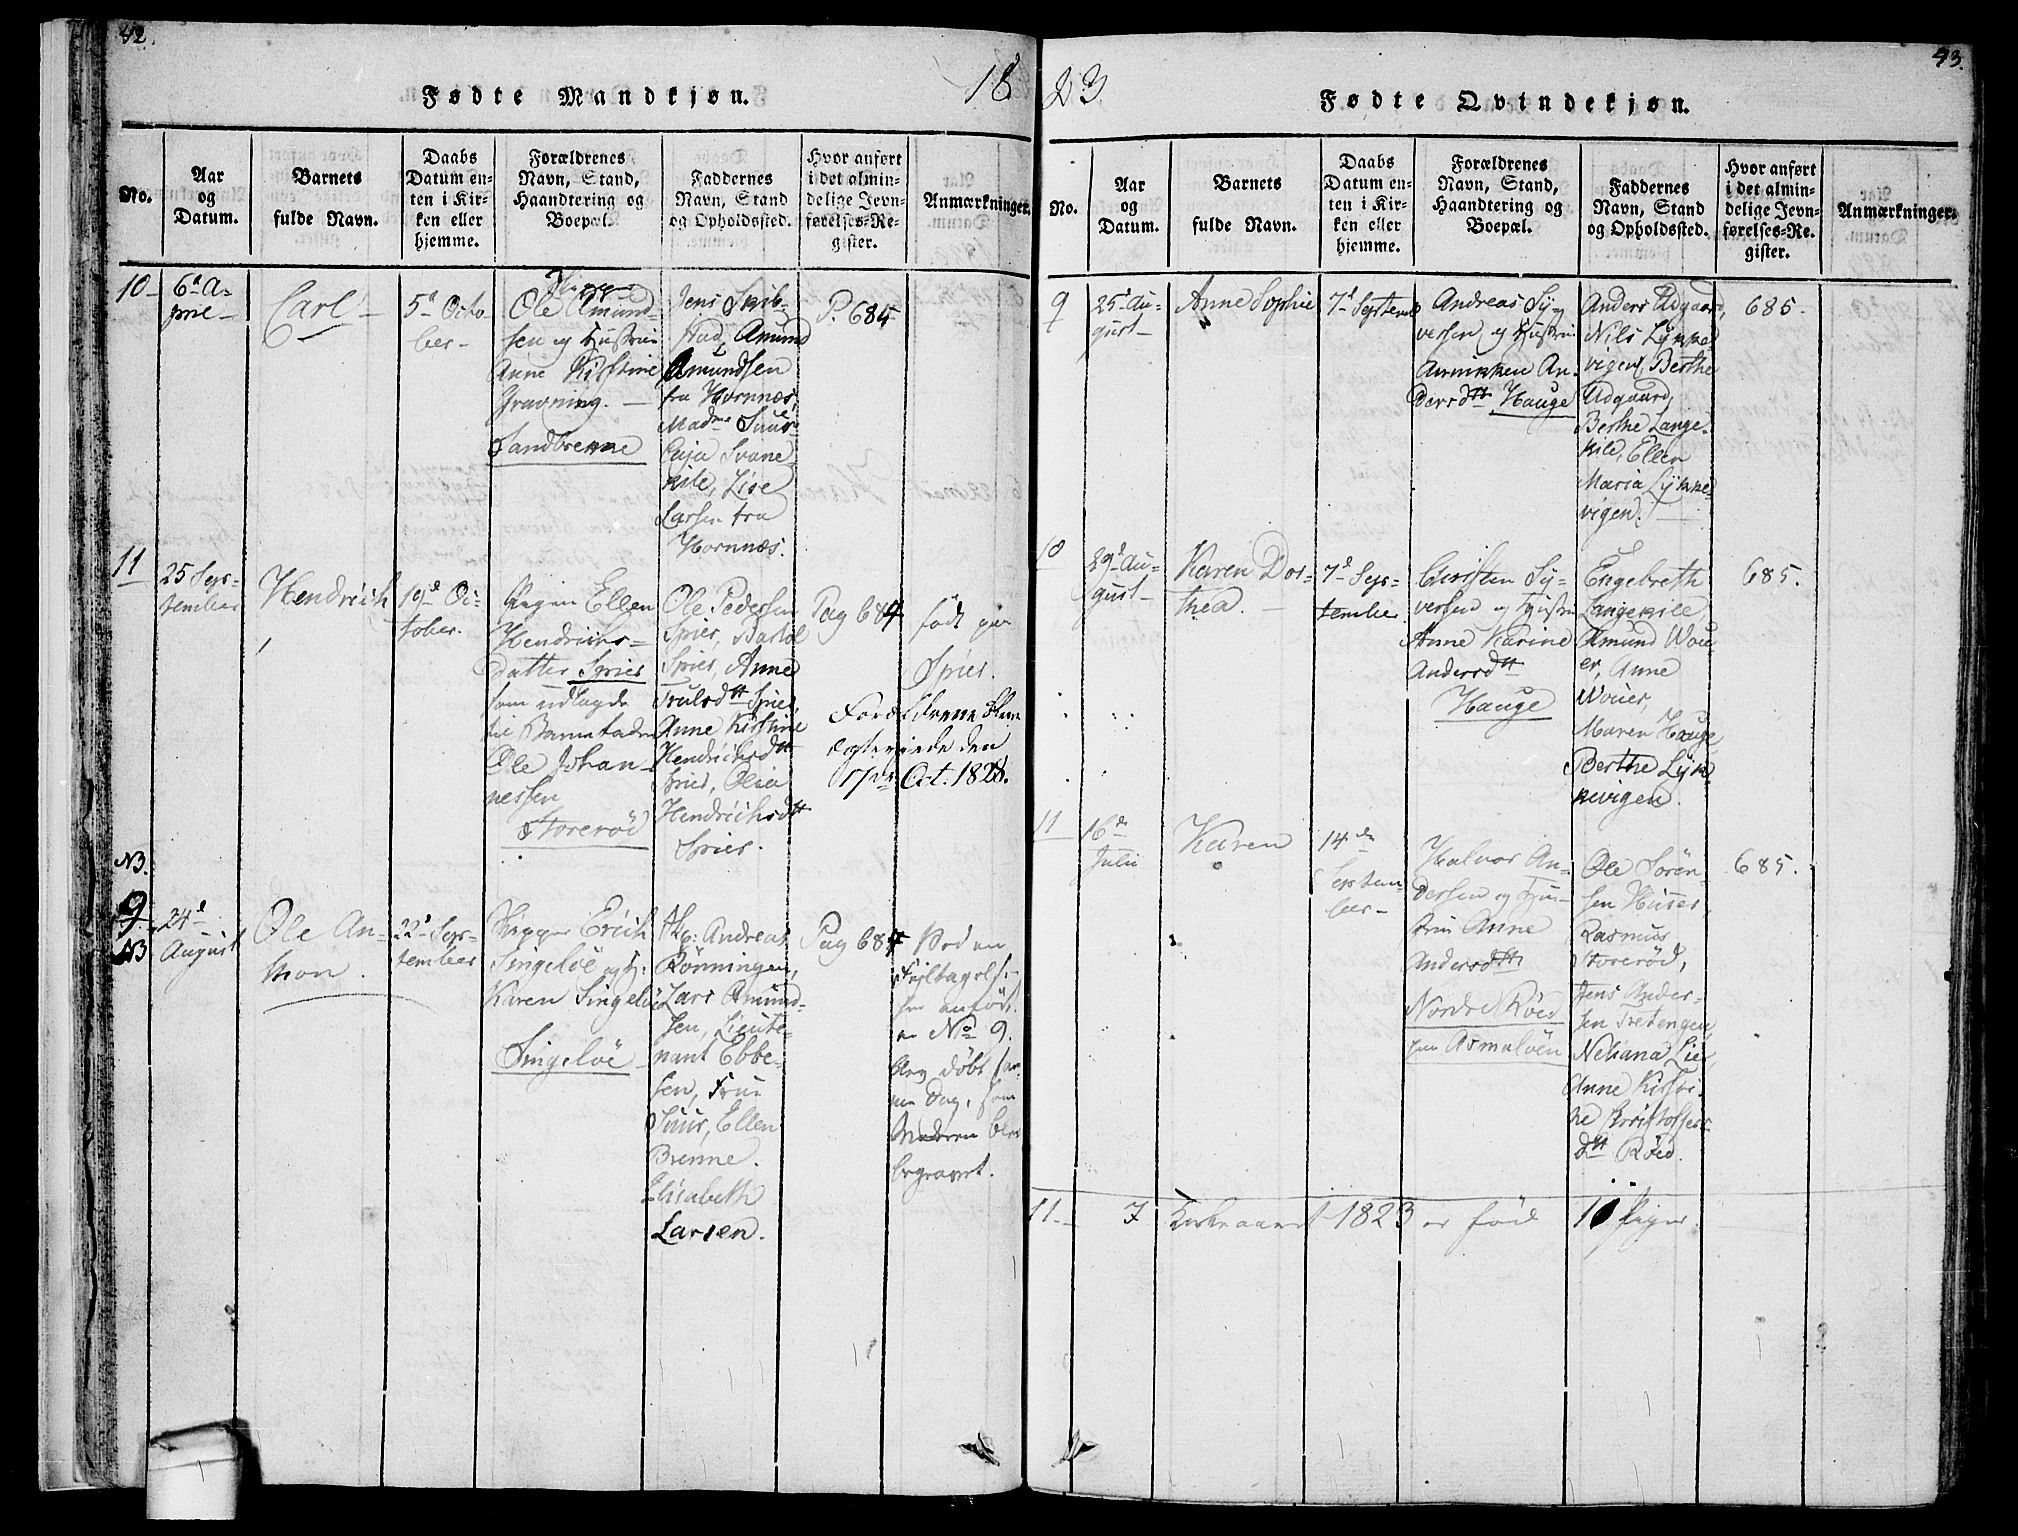 42.
18
Fødte Mandkjøn.
No.
Aar
og
Datum.
Barnets
fulde Navn.
Daabs
Datum en-
ten i Kir-
ken eller
hjemme.
Forældrenes
Navn, Stand,
Haandtering og
Boepæl.
Faddernes
Navn, Stand
og Opholdssted.
Hvor anført
i det almin-
delige Jevn-
førelses-Re-
gister.
Anmærkninger.
10
Carl
5d Octo
ber
Ole Amund-
sen og Hustrue
Anne Kirstine
Gravning.
Sandbrenne
Jens Skib-
stad, Amund
Amundsen
fra Hornnæs,
Madme Suur
Svane
kile, Lise
Larsen fra
Hornnæs.
P. 684
11
25 Sep-
tember
Hendrich
19d Oc-
tober.
Pigen Ellen
Hendrichs-
datter Spiær
som udlagde
til Barnefader
Ole Johan-
nessen
Storerød
Ole Pedersen
Spiær,
Spiær, Anne
Trulsdtt Spiær,
Anne Kirstine
Hendrichsdtt
Spiær, Olia
Hendrichsdtt
Spiær.
Pag 684
født paa
Spiær.
Forældrene bleve
egteviede den
17de Oct. 1828.
NB.
9
NB
24d
August
Ole An-
thon.
22d Sep-
tember
Skipper Erich
Singeløe og H.
Karen Singeløe
Singeløe
Skp: Andreas
Rønningen,
Lars Amund-
sen, Lieute-
nant Ebbe-
sen, Frue
Suur, Ellen
Brenne.
Elisabeth
Larsen.
Pag 684
Ved en
Fejltagelse
her anført
er No 9.
blev døbt sam-
me Dag, som
Moderen blev
begravet.
23
43.
Fødte Qvindekjøn.
No.
Aar
og
Datum.
Barnets
fulde Navn.
Daabs
Datum en-
ten i Kir-
ken eller
hjemme.
Forældrenes
Navn, Stand,
Haandtering og
Boepæl.
Faddernes
Navn, Stand
og Opholdssted.
Hvor anført
i det almin-
delige Jevn-
førelses-Re-
gister.
Anmærkninger.
9
25d Au-
gust
Anne Sophie
7d Septemb
Andreas Sy-
versen og Hustrue
Annikken An-
dersdtt Hauge
Anders Udgaard,
Nils Lykke
vigen, Berthe
Udgaard,
Berthe Lange-
kile, Ellen
Maria Lykke-
vigen.
685.
10
29d Au-
gust
Karen Dor-
thea.
7d Sep-
tember
Christen Sy-
versen og Hustrue
Anne Karine
Andersdtt
Hauge
Engebreth
Langekile,
Amund Wou
er, Anne
Wouer,
Maren Hauge
Berthe Lyk-
kevigen.
685.
11
16de
Julii
Karen
14de
Septem-
ber
Halvor An-
dersen og Hu-
strue Anne
Andersdtt
Nordre Røed
paa Asmaløen
Ole Søren-
sen Huser,
Rasmus
Storerød,
Jens Ander-
sen Tretengen,
Neliana Lie,
Anne Kirsti-
ne Christoffers-
dtt Røed.
685.
11
7
Kirkeaaret 1823 er fød 10 Piger